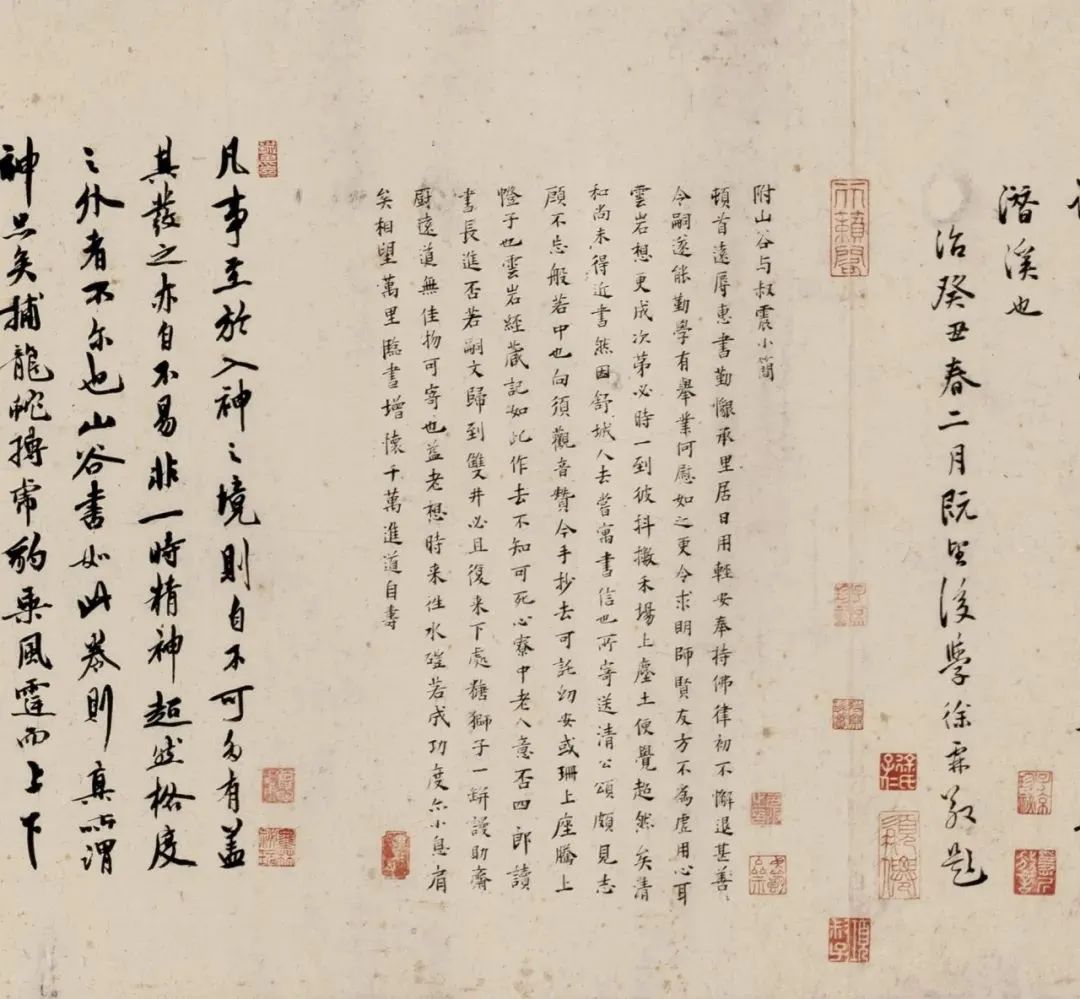 潛溪也
治癸丑春二月既望後學徐霖敬題
附山谷与叔震小簡
頓首遠辱惠書勤懇承里居日用輕安奉持佛律初不懈退甚善
令嗣遂能勤學有舉業何慰如之更令求明師賢友方不為虛用心耳
雲岩想更成次第必時一到彼抖擻禾場上塵土便覺超然矣清
和尚未得近書然因舒城人去嘗寓書信也所寄送清公頌頗見志
願不忘般若中也向須觀音贊今手抄去可託幼安或珊上座騰上
燈子也雲岩經藏記如此作去不知可死心寮中老人意否四郎讀
書長進否若嗣文歸到雙井必且復来下處糖獅子一缾謾助齋
厨遠道無佳物可寄也益老想時来往水磑若成功度亦小息肩
矣相望萬里臨書增懷千萬進道自壽
凡事至於入神之境則自不可多有盖
其發之亦自不易非一時精神超然格度
之外者不尔也山谷書如此卷則真所謂
神品矣捕龍蛇搏帟豹乘風霆而上下
天籟閣